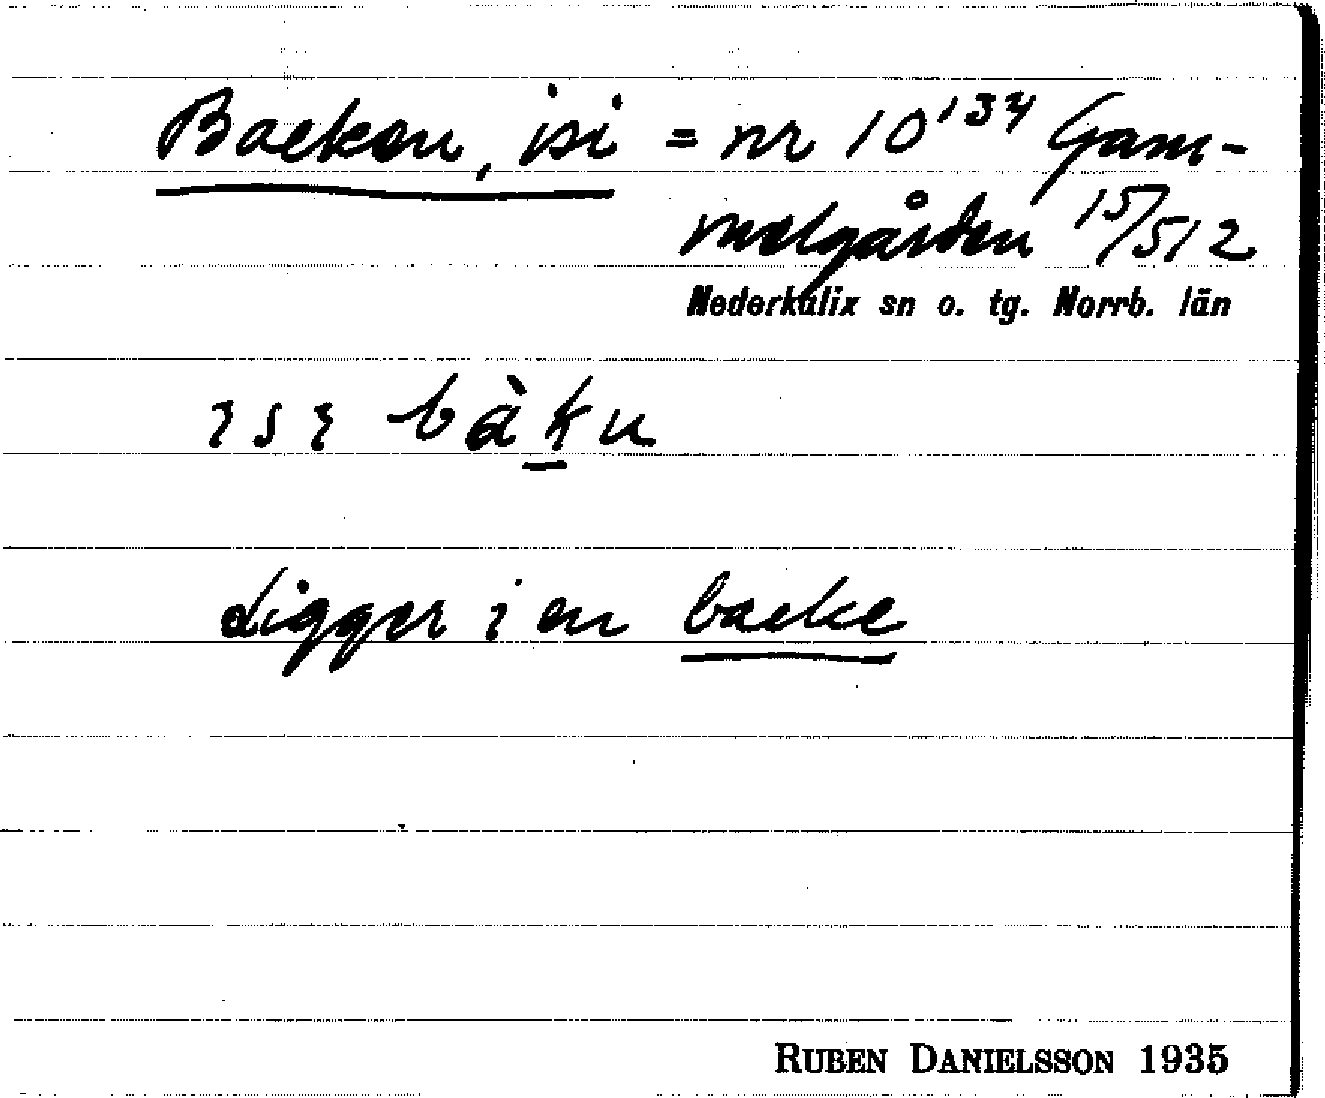 Backen, isi = nr 10¹³⁴ Gam-
melgården 15/512
Nederkalix sn o. tg. Norrb. län
ɩsɩ bàku
Ligger i en backe
RUBEN DANIELSSON 1935